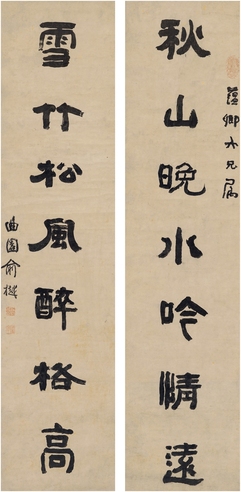 蔼卿大兄属
秋山晚水吟情遠
雪竹松風醉格高
曲園俞樾